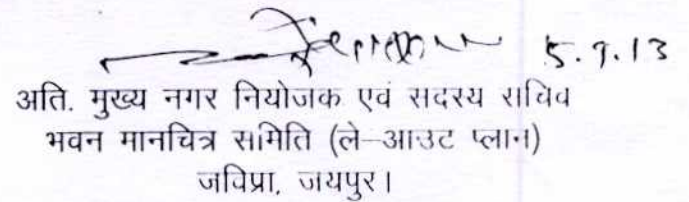 5.9.13
अति. मुख्य नगर नियोजक एवं सदस्य सचिव
भवन मानचित्र समिति (ले-आउट प्लान)
जविप्रा, जयपुर।